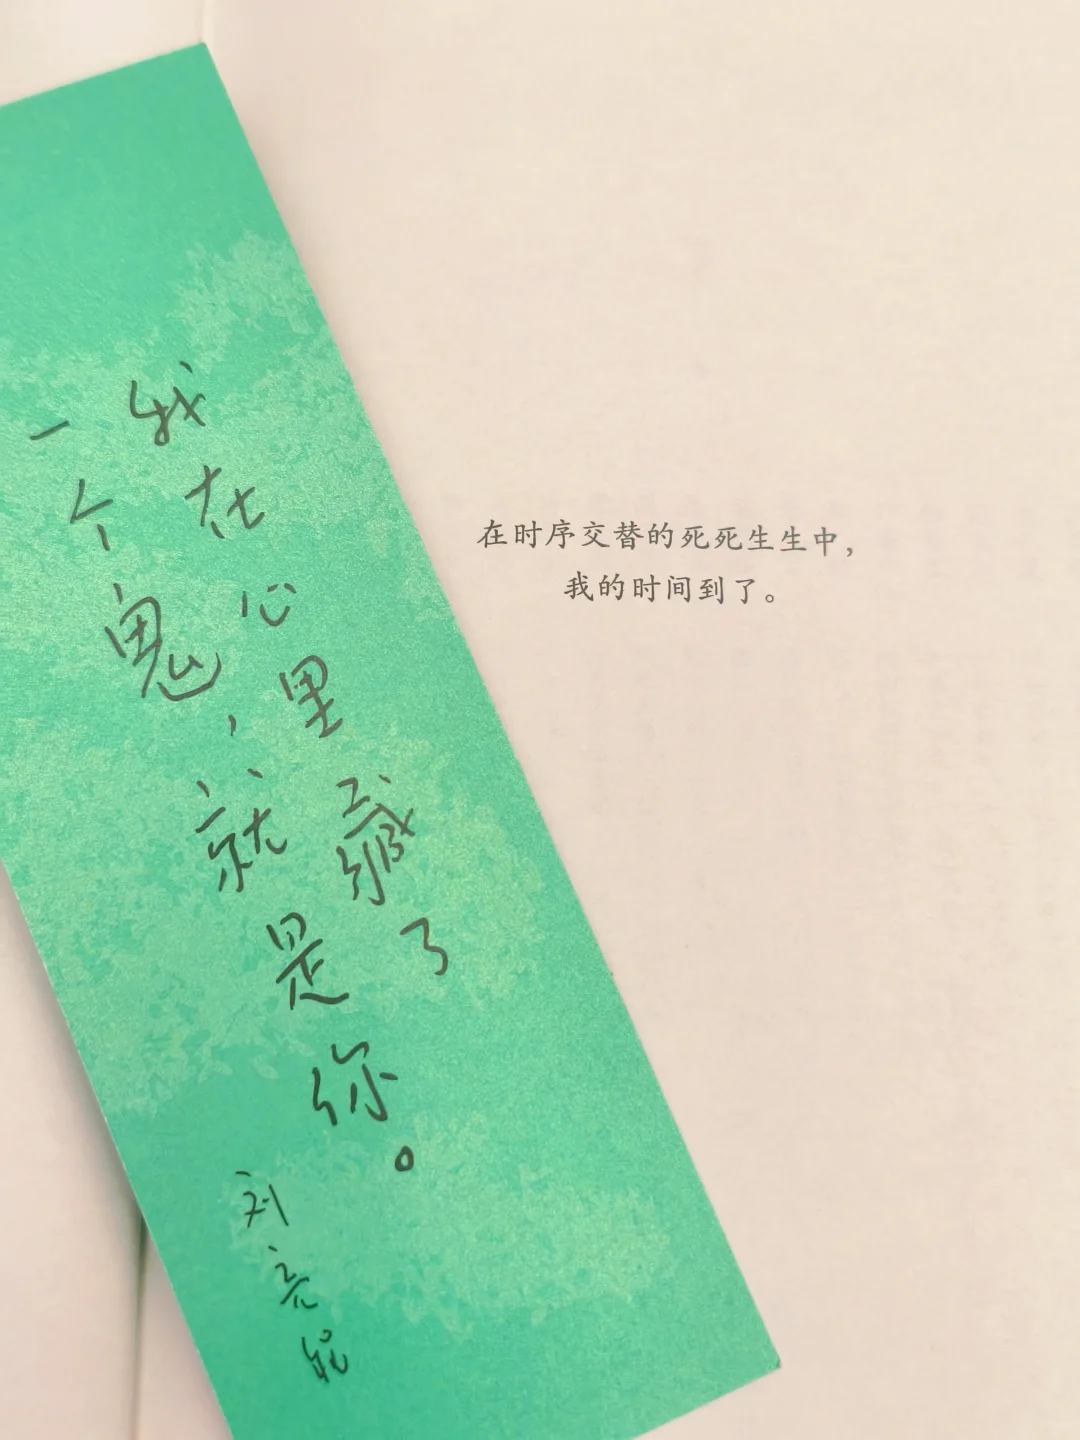 我在心里藏了
一个鬼,就是你。
刘亮程
在时序交替的死死生生中，
我的时间到了。